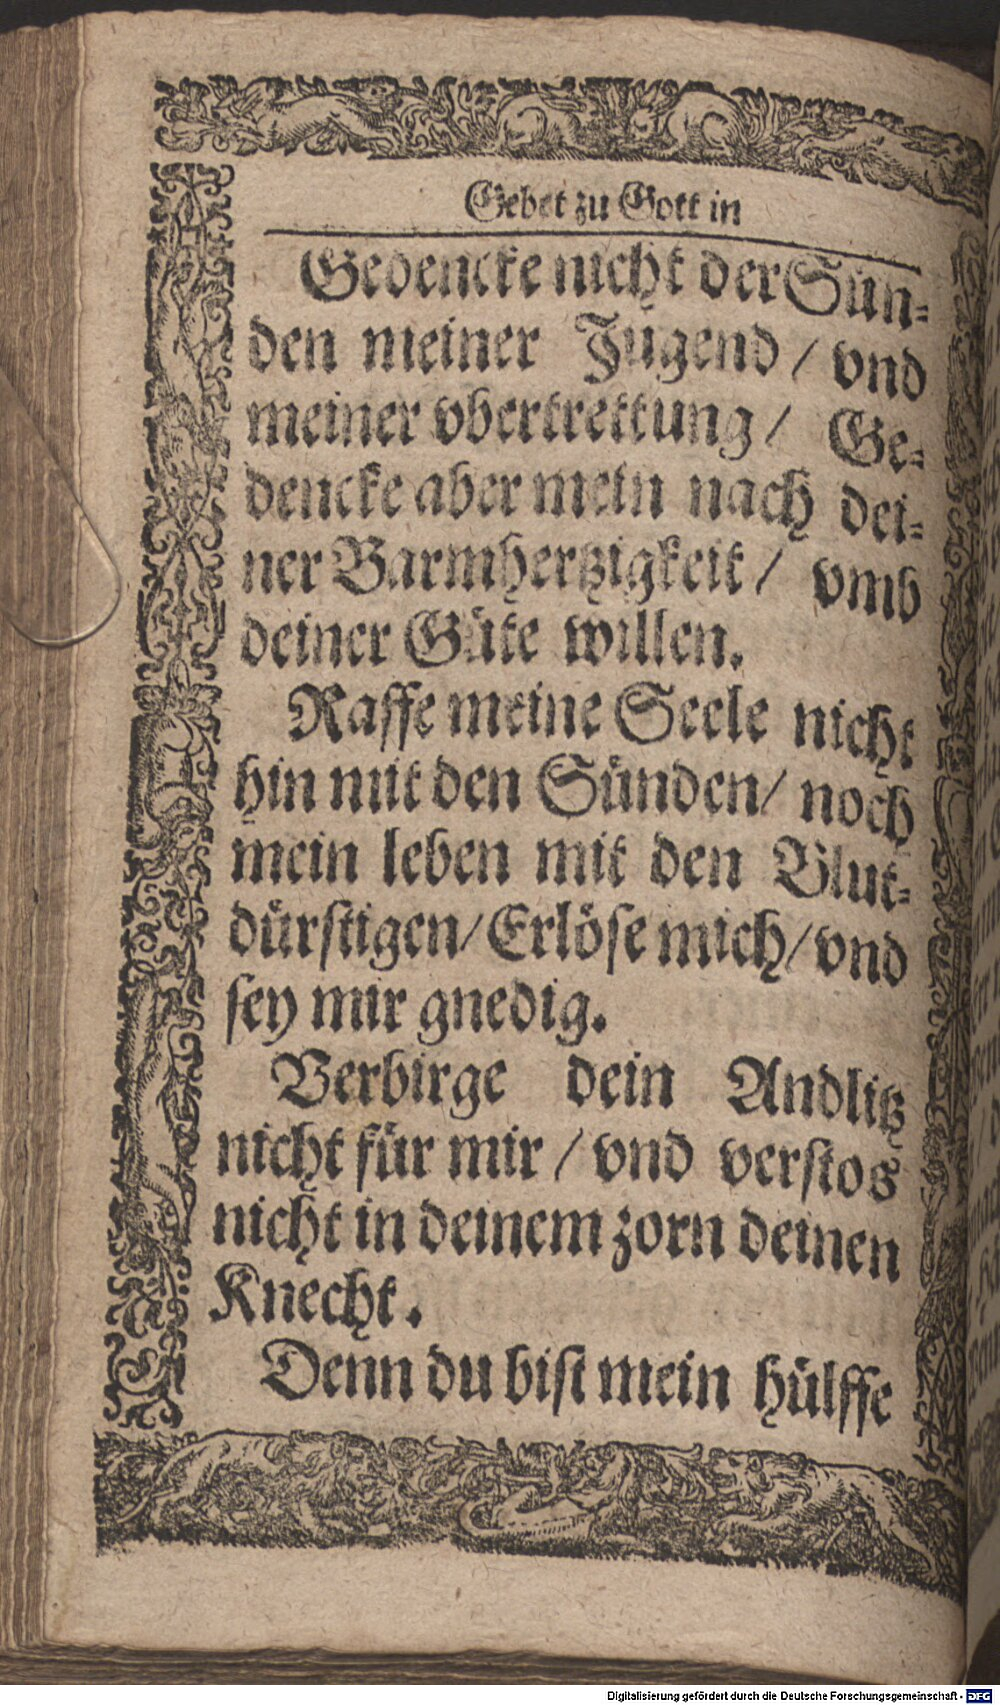 Gebet zu Gott in
Gedencke nicht der Sün-
den meiner Jugend / vnd
meiner vbertrettung / Ge-
dencke aber mein nach dei-
ner Barmhertzigkeit / vmb
deiner Güte willen.
Raffe meine Seele nicht
hin mit den Sünden / noch
mein leben mit den Blut-
dürstigen / Erlöse mich / vnd
sey mir gnedig.
Verbirge dein Andlitz
nicht für mir / vnd verstos
nicht in deinem zorn deinen
Knecht.
Denn du bist mein hülffe
Digitalisierung gefördert durch die Deutsche Forschungsgemeinschaft - DFG